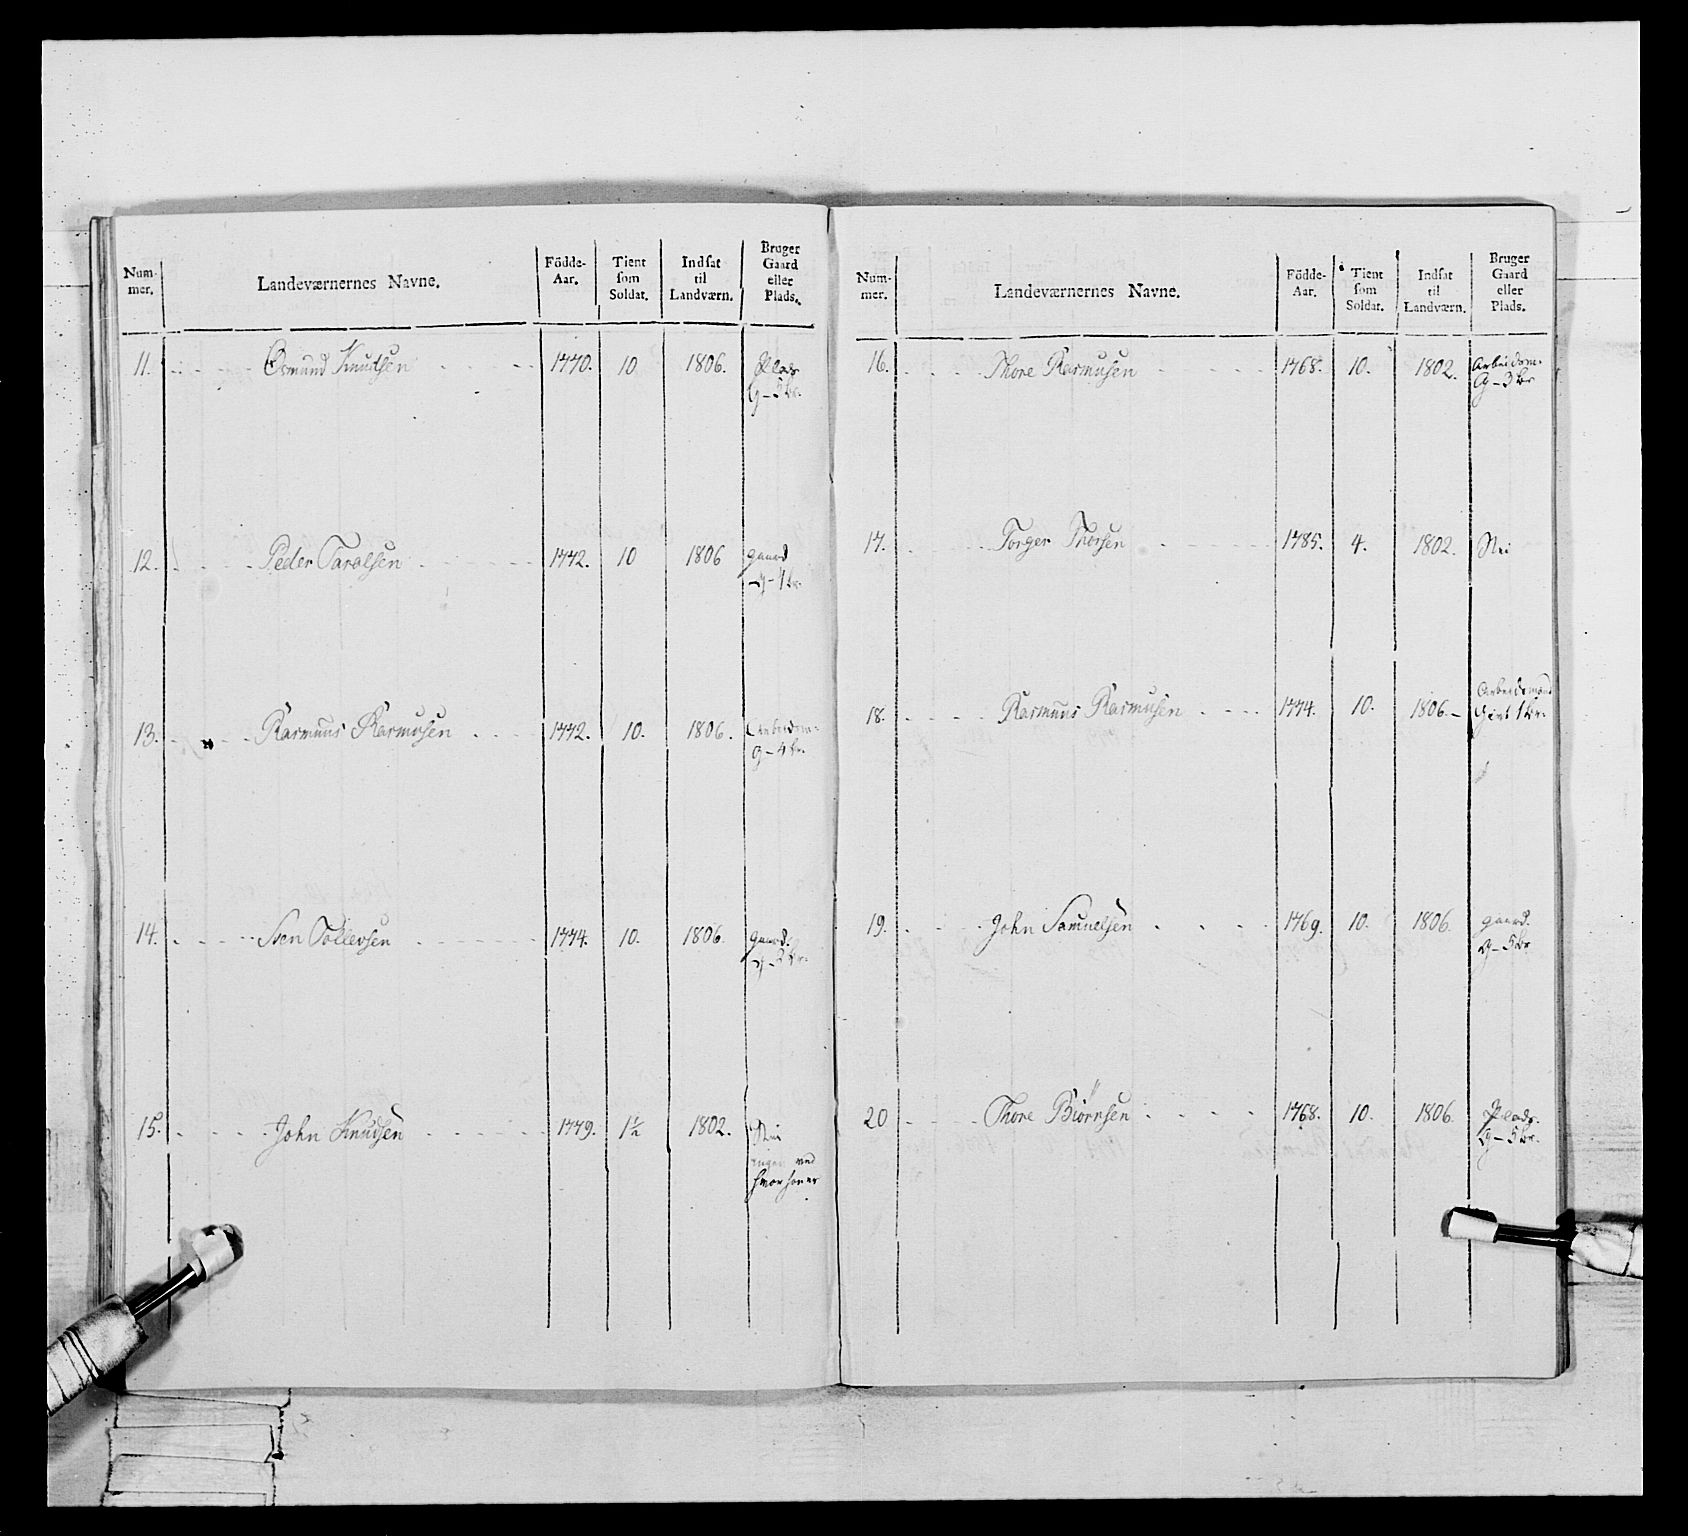 Num-
mer.
Landeværnernes Navne.
Födde-
Aar.
Tient
som
Soldat.
Indsat
til
Landværn.
Bruger
Gaard
eller
Plads.
11. Osmund Knudsen 1770. 10 1806. Plads
G - 5 br.
12. Peder Tarolsen 1772. 10 1806 gaard
G - 4 br.
13. Rasmus Rasmusen 1772. 10. 1806. Arbeidsm.
G - 4 br.
14. Sven Tollevsen 1774. 10. 1806. gaard.
15. John Knudsen 1779. 1½ 1802. Nei
Num-
mer.
Landeværnernes Navne.
Födde-
Aar.
Tient
som
Soldat.
Indsat
til
Landværn.
Bruger
Gaard
eller
Plads.
16. Thore Rasmusen 1768. 10. 1802. Arbeidsm.
G - 3 br
17. Torger Thorsen 1785. 4. 1802. Nei
18. Rasmus Rasmusen 1774. 10. 1806 - Arbeidsmand
Givt 1 br.
19. John Samuelsen 1769. 10. 1806. gaard.
G - 5 br
20 Thore Biörnsen 1768. 10. 1806. Plads.
G - 5 br.